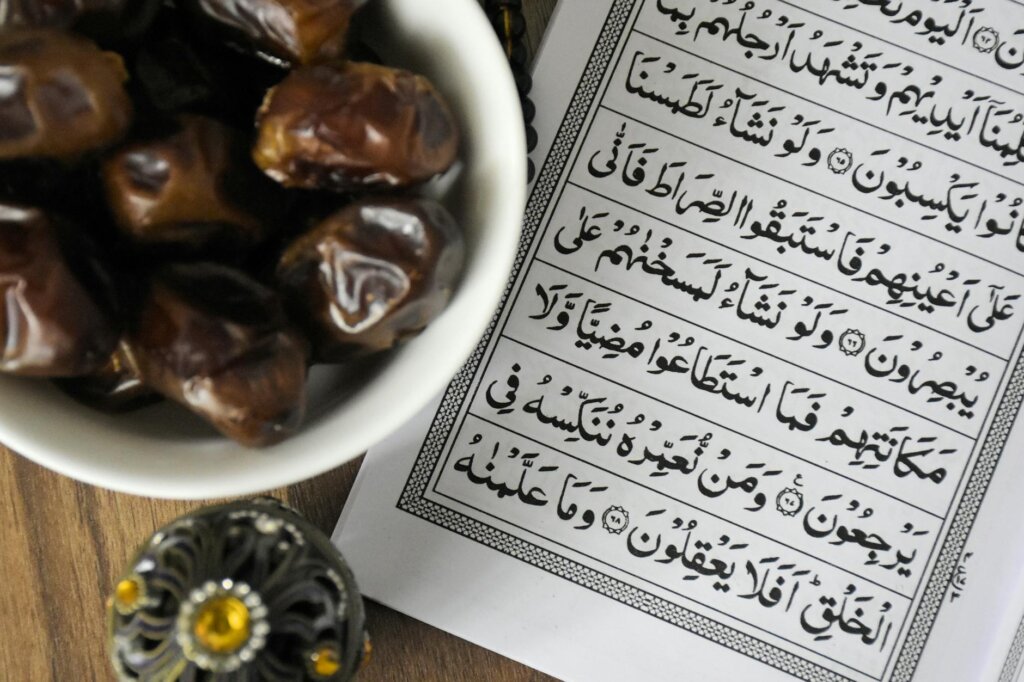 اَلْيَوْمَ
لِّمُنَاۤ اَيْدِيْهِمْ وَتَشْهَدُ اَرْجُلُهُمْ بِمَا
انُوْا يَكْسِبُوْنَ ﴿٦٥﴾ وَلَوْ نَشَآءُ لَطَمَسْنَا
عَلٰٓى اَعْيُنِهِمْ فَاسْتَبَقُوا الصِّرَاطَ فَاَنّٰى
يُبْصِرُوْنَ ﴿٦٦﴾ وَلَوْ نَشَآءُ لَمَسَخْنٰهُمْ عَلٰى
مَكَانَتِهِمْ فَمَا اسْتَطَاعُوْا مُضِيًّا وَّلَا
يَرْجِعُوْنَ ﴿٦٧﴾ وَمَنْ نُّعَمِّرْهُ نُنَكِّسْهُ فِى
الْخَلْقِ ؕ اَفَلَا يَعْقِلُوْنَ ﴿٦٨﴾ وَمَا عَلَّمْنٰهُ